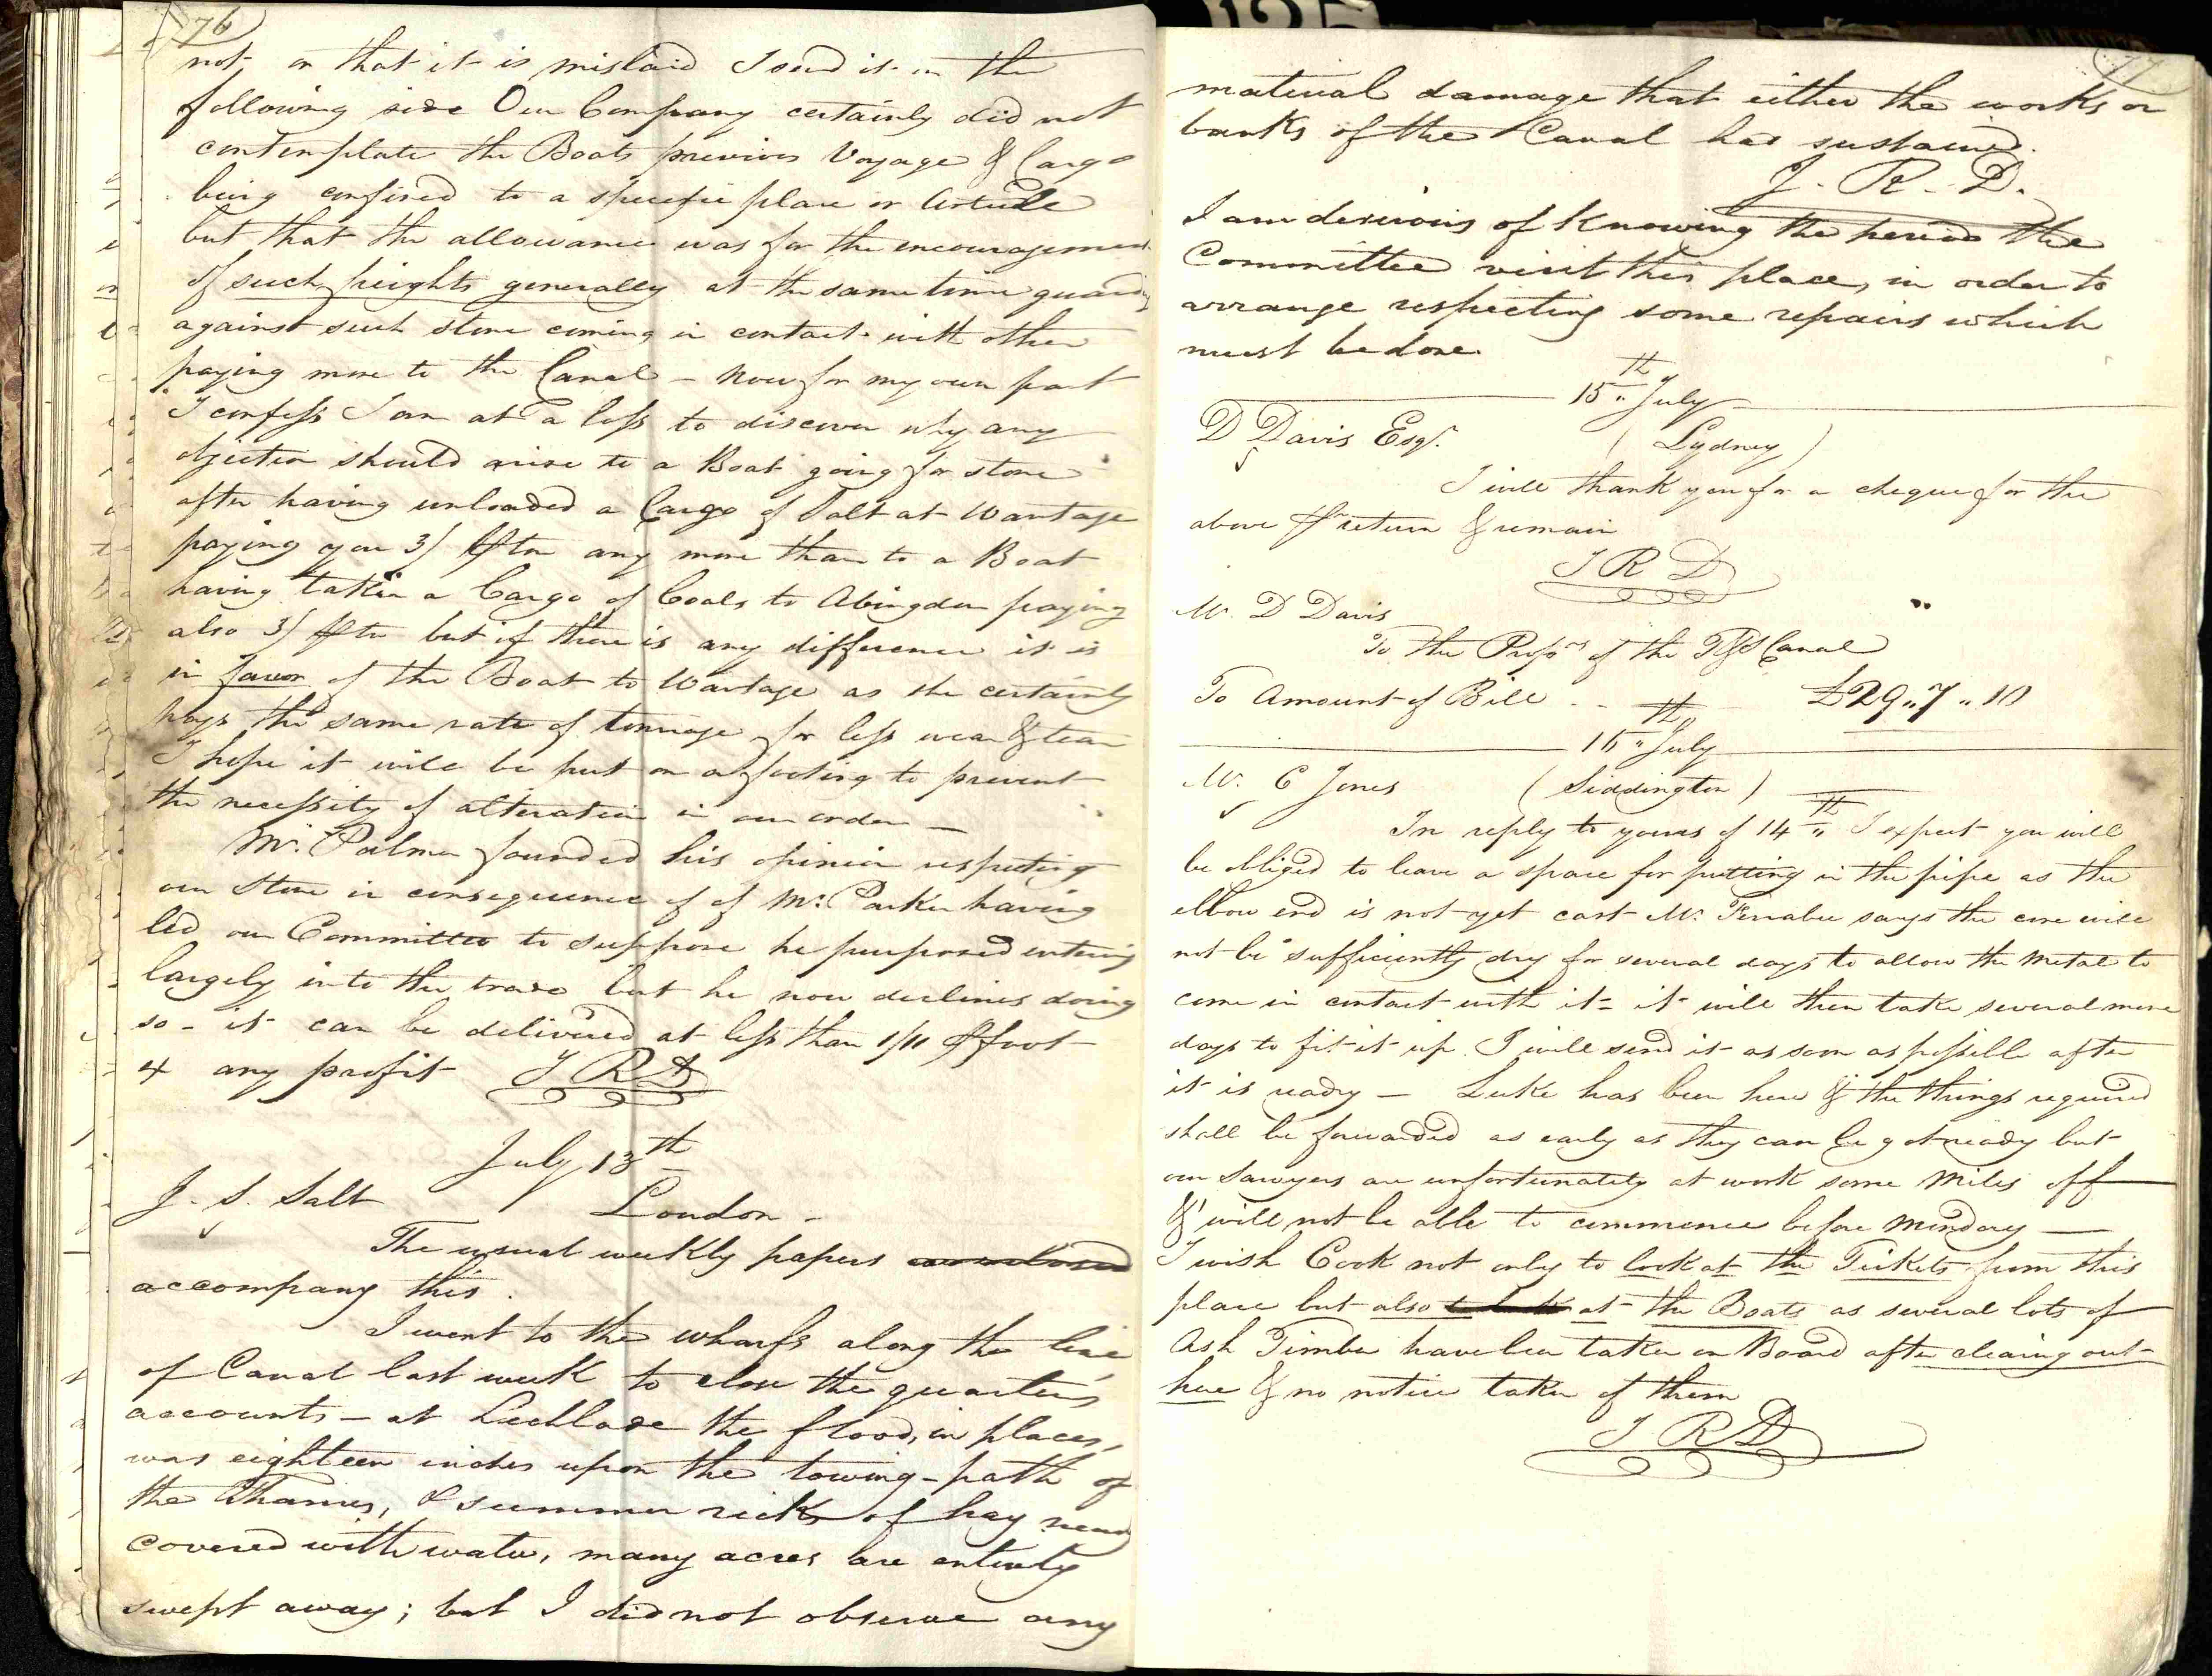 76
not, or that it is mislaid I send it on the
following side Our Company certainly did not
contemplate the Boats previous Voyage & Cargo
being confined to a specific place or Article
but that the allowance was for the encouragement
of such freights generally at the same time guarding
against such stone coming in contact with other
paying more to the Canal – Now for my own part
I confess I am at a loss to discover why any
objection should arise to a Boat going for stone
after having unloaded a Cargo of Salt at Wantage
paying you 3/ ⅌ ton any more than to a Boat
having taken a Cargo of Coals to Abingdon paying
also 3/ ⅌ tn but if there is any difference it is
in favor of the Boat to Wantage as she certainly
pays the same rate of tonnage for less wear & tear
I hope it will be put on a footing to prevent
the necessity of alteration in our order –
Mr. Palmer founded his opinion respecting
our Stone in consequence of of Mr. Parker having
led our Committee to suppose he purposed entering
largely into the trade but he now declines doing
so – it can be delivered at less than 1/11 ⅌ foot
& any profit J R D
July 13th
J. S. Salt London –
The usual weekly papers are enclosed
accompany this.
I went to the wharfs along the line
of Canal last week to close the quarter's
accounts – at Lechlade the flood, in places,
was eighteen inches upon the towing-path of
the Thames, & summer ricks of hay nearly
covered with water, many acres are entirely
swept away; but I did not observe any
77
material damage that either the works or
banks of the Canal had sustained.
J. R. D.
I am desirous of knowing the period the
Committee visit this place, in order to
arrange respecting some repairs which
must be done.
15th July
D Davis Esqr. (Lydney)
I will thank you for a cheque for the
above ⅌ return & remain
J R D
Mr. D Davis
To the Proprs of the T&S Canal
To Amount of Bill . . £29..7..10
16th July
Mr. C Jones (Siddington)
In reply to yours of 14th I expect you will
be obliged to leave a space for putting in the pipe as the
elbow end is not yet cast Mr. Ferrabee says the core will
not be sufficiently dry for several days to allow the Metal to
come in contact with it – it will then take several more
days to fit it up. I will send it as soon as possible after
it is ready – Luke has been here & the things required
shall be forwarded as early as they can be got ready but
our Sawyers are unfortunately at work some Miles off
& will not be able to commence before Monday –
I wish Cook not only to look at the Tickets from this
place but also to look at the Boats as several lots of
Ash Timber have been taken on Board after clearing out
here & no notice taken of them
J R D